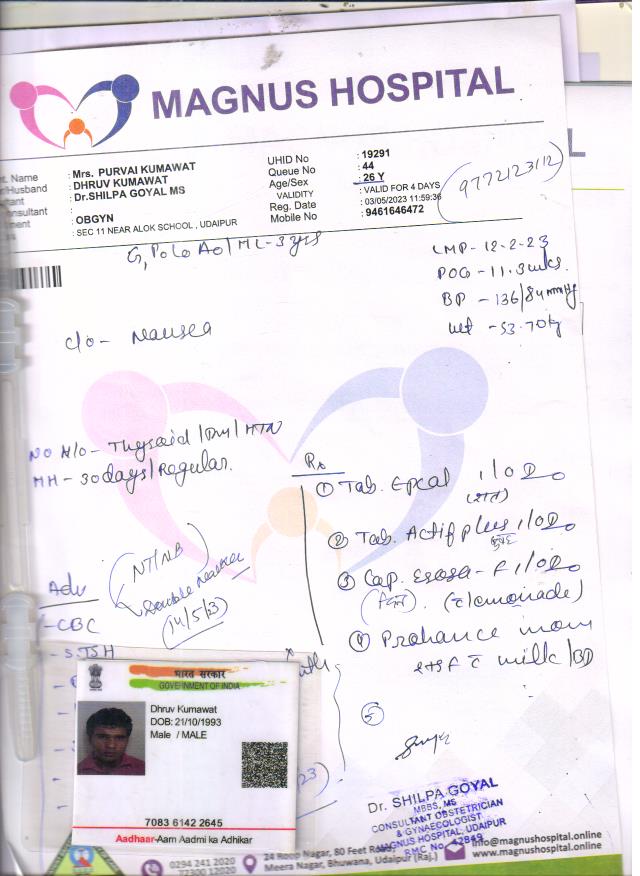 MAGNUS HOSPITAL
L
Name : Mrs. PURVAI KUMAWAT
/Husband : DHRUV KUMAWAT
: Dr.SHILPA GOYAL MS
onsultant :
ment : OBGYN
: SEC 11 NEAR ALOK SCHOOL , UDAIPUR
UHID No : 19291
Queue No : 44
Age/Sex : 26 Y
VALIDITY : VALID FOR 4 DAYS
Reg. Date : 03/05/2023 11:59:36
Mobile No : 9461646472
9772123112
G1P0L0A0/ML-3yrs
LMP- 12-2-23
POG - 11.3wks.
BP - 136/84mmHg
wt - 53.70kg
c/o- Nausea
NO H/O- Thyroid/DM/HTN
MH - 30days/Regular.
Rx
① Tab. Epcal 1/OD
② Tab. Actifplus 1/OD
③ Cap. Esosa-F 1/OD
(c lemonade)
④ Prohance mom
c milk/BD
⑤
Adv
NT/NB
Double Marker
(14/5/23)
-CBC
-S.TSH
भारत सरकार
GOVERNMENT OF INDIA
Dhruv Kumawat
DOB: 21/10/1993
Male / MALE
7083 6142 2645
Aadhaar-Aam Aadmi ka Adhikar
Dr. SHILPA GOYAL
MBBS, MS
CONSULTANT OBSTETRICIAN
& GYNAECOLOGIST
MAGNUS HOSPITAL, UDAIPUR
RMC No. 42849
0294 241 2020
77300 12020
24 Roop Nagar, 80 Feet Road,
Meera Nagar, Bhuwana, Udaipur (Raj.)
info@magnushospital.online
www.magnushospital.online